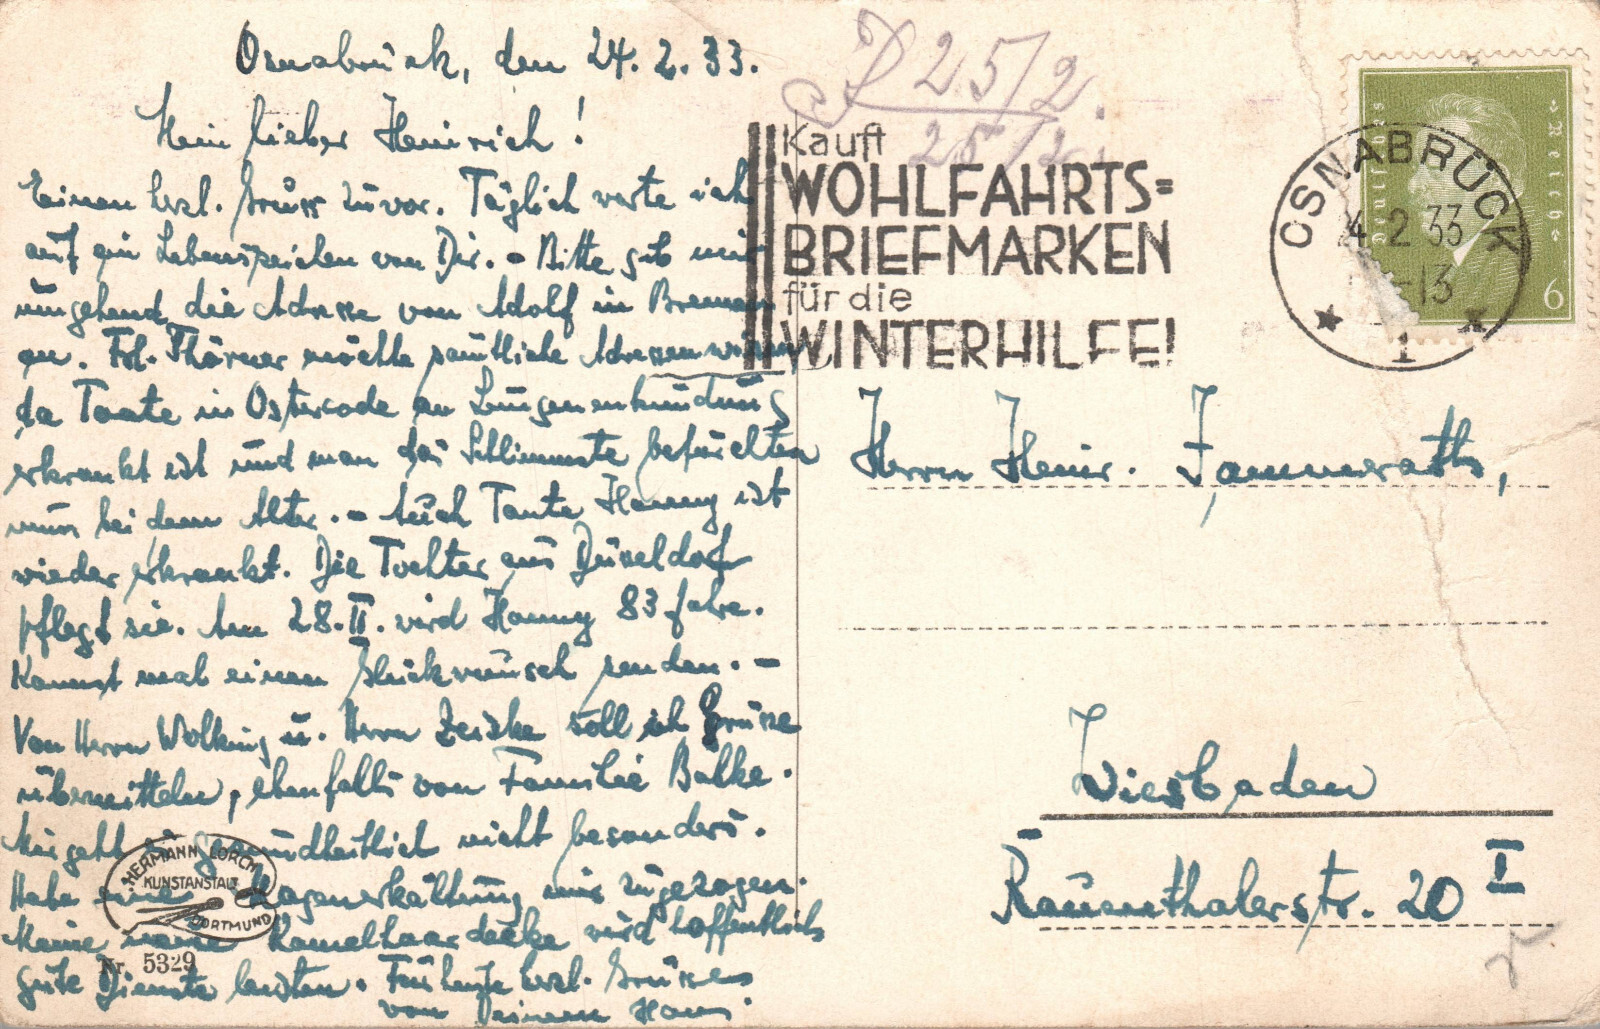 Osnabrück, den 24. 2. 33.
Mein lieber Heinrich!
Einen herzl. Gruss zuvor. Täglich warte ich
auf ein Lebenszeichen von Dir. – Bitte gib mir
umgehend die Adresse von Adolf in Bremen
an. Frl. Thörner möchte sämtliche Adressen wissen
da Tante in Osterode an Lungenenkündung
erkrankt ist und man das Schlimmste befürchten
muss bei dem Alter. – Auch Tante Hanny ist
wieder erkrankt. Die Tochter aus Düsseldorf
pflegt sie. Am 28. II. wird Hanny 83 Jahre.
Kannst mal einen Glückwunsch senden. –
Von Herrn Wolking u. Herrn Zeiske soll ich Grüsse
übermitteln, ebenfalls von Familie Balke.
Mir geht es gesundheitlich nicht besonders.
Habe eine Magenerkältung mir zugezogen.
Meine neue Kamelhaardecke wird hoffentlich
gute Dienste leisten. Für heute herzl. Grüsse
von Deinem Hans.
HERMANN LORCH
KUNSTANSTALT
DORTMUND
Nr. 5329
25/2.
25/2.
Kauft
WOHLFAHRTS=
BRIEFMARKEN
für die
WINTERHILFE!
Deutsches Reich
6
OSNABRÜCK
4 2 33
-13
1
Herrn Heinr. Jammerath,
Wiesbaden
Rauenthalerstr. 20 I